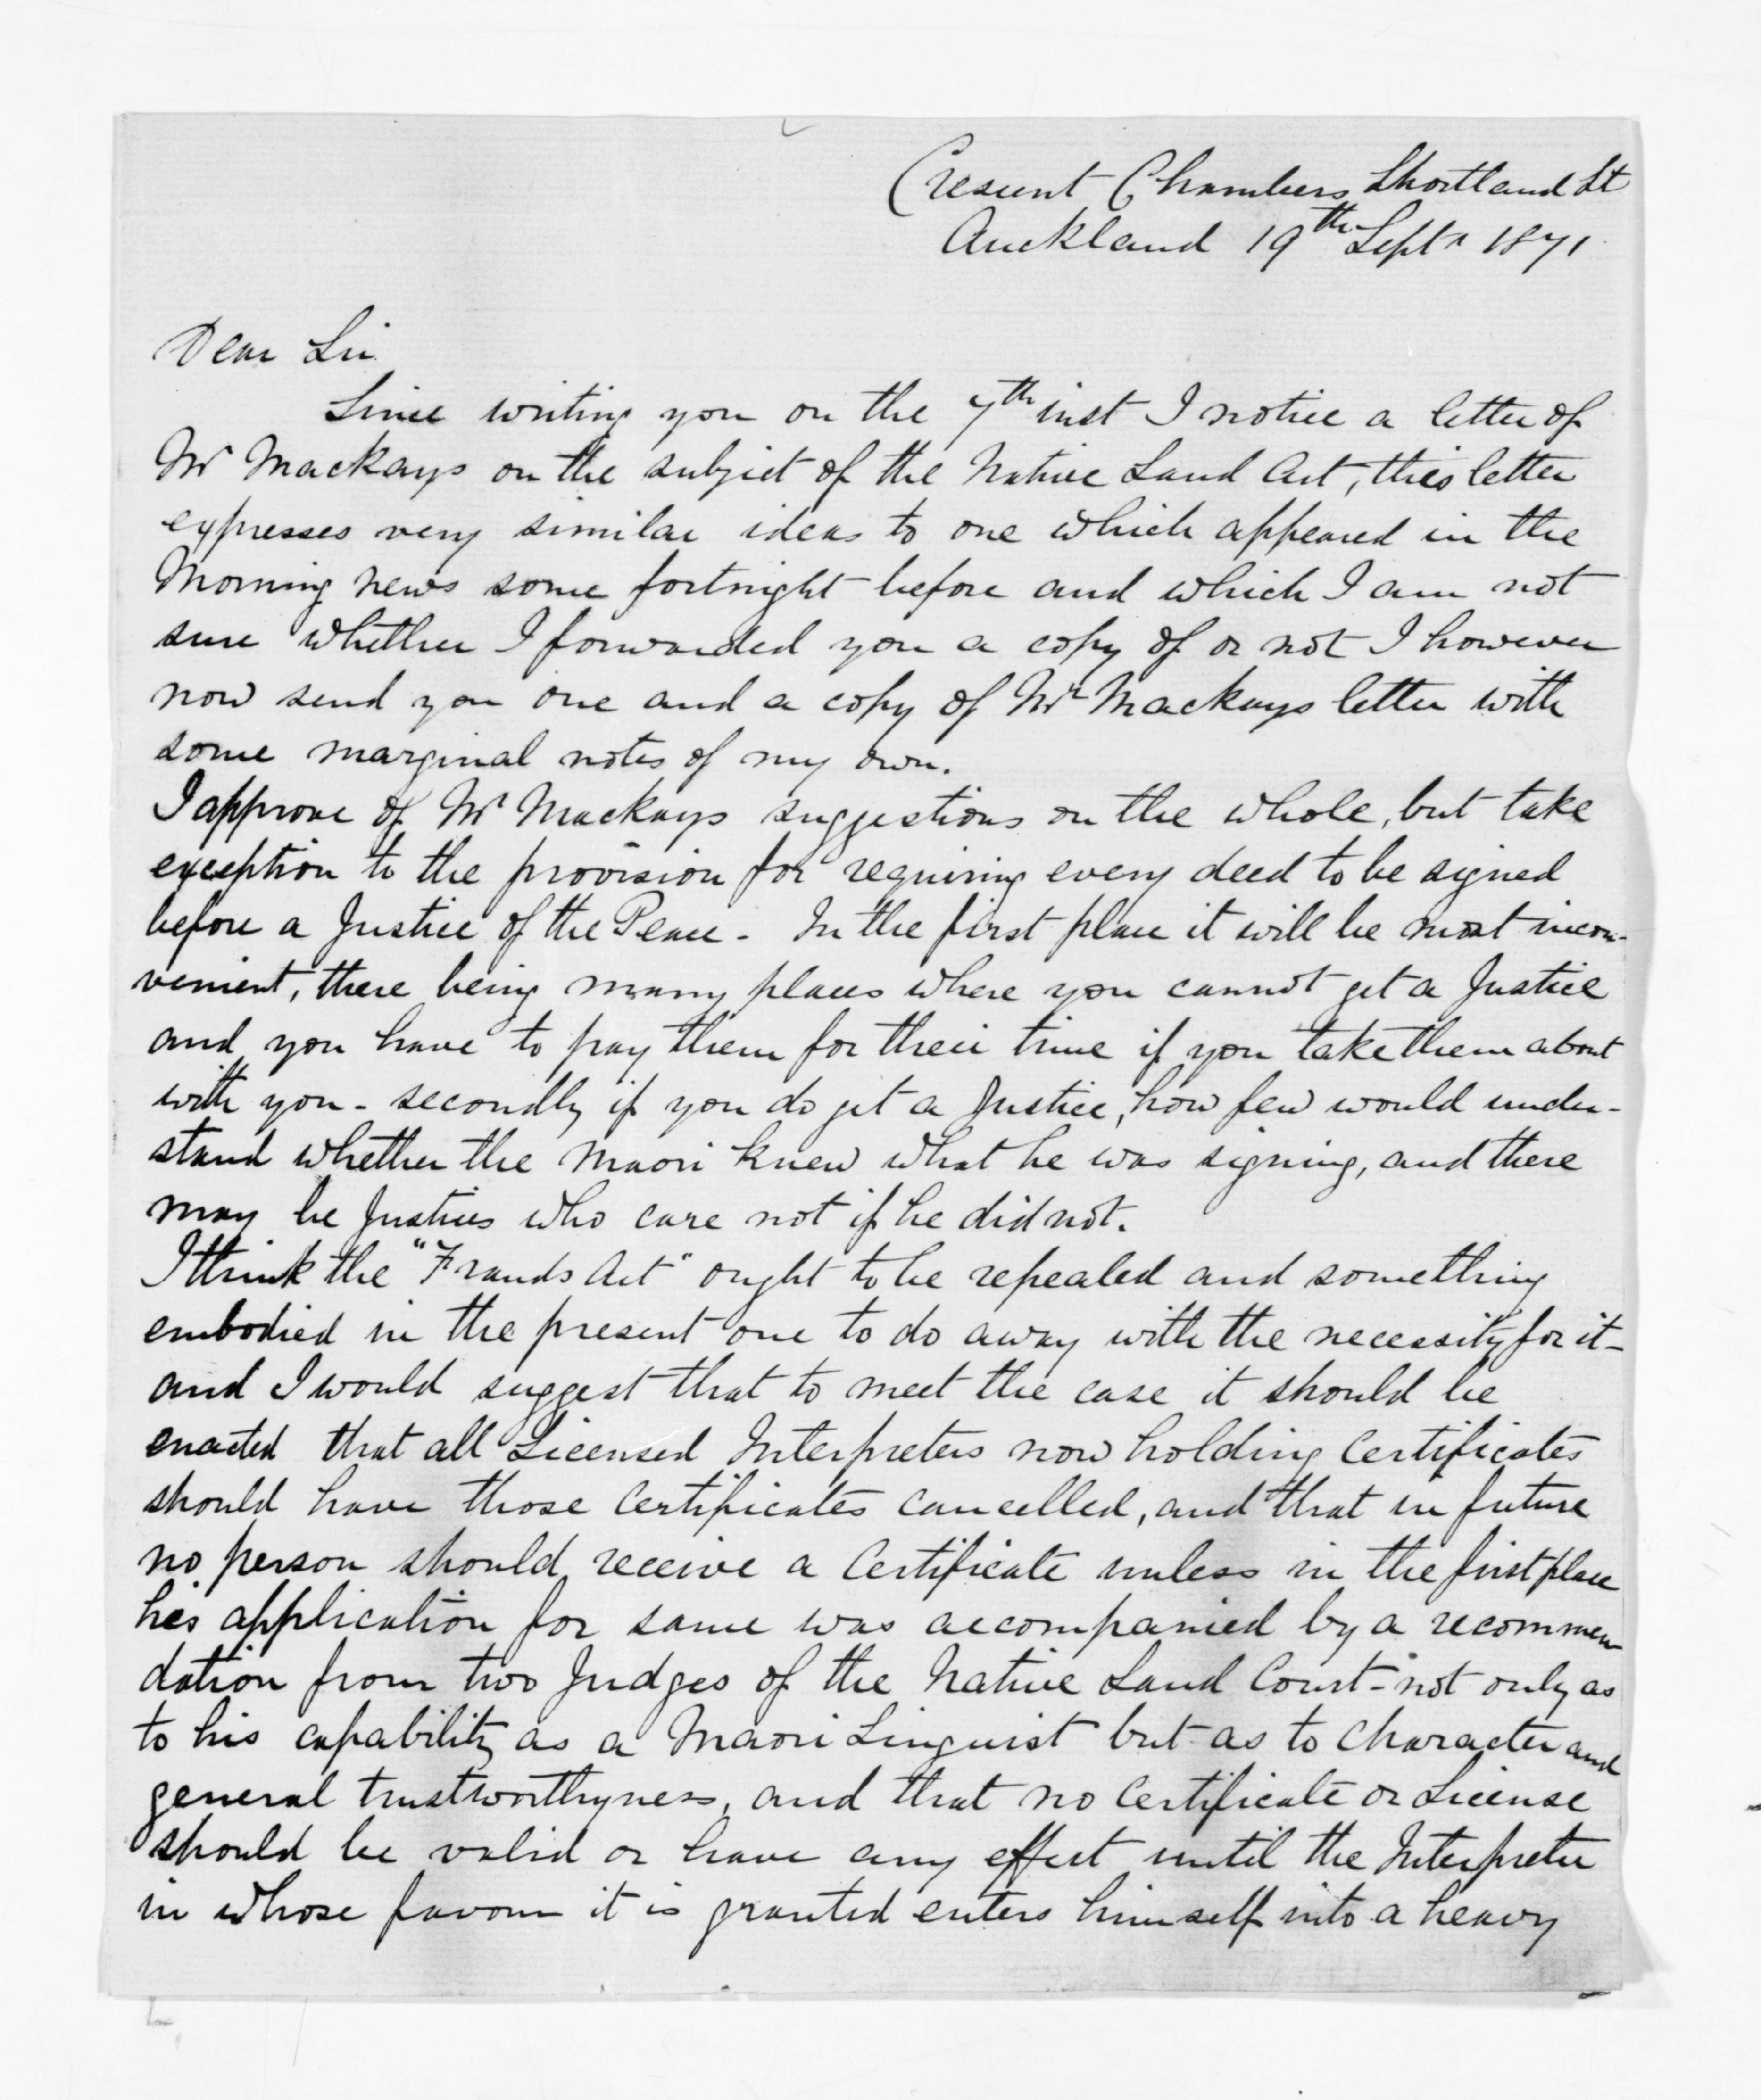 Cresent Chambers Shortland St
Auckland 19th Septr 1871
Dear Sir
Since writing you on the 7th inst I notice a letter of
Mr Mackays on the subject of the Native Land Act, this letter
expresses very similar ideas to one which appeared in the
Morning News some fortnight before and which I am not
sure whether I forwarded you a copy of or not I however
now send you one and a copy of Mr Mackays letter with
some marginal notes of my own.
I approve of Mr Mackays suggestions on the whole, but take
exception to the provision for requiring every deed to be signed
before a Justice of the Peace - In the first place it will be most incon-
venient, there being many places where you cannot get a Justice
and you have to pay them for their time if you take them about
with you - secondly if you do get a Justice, how few would under-
stand whether the Maori knew what he was signing, and there
may be Justices who care not if he did not.
I think the "Frauds Act" ought to be repealed and something
embodied in the present one to do away with the necessity for it -
and I would suggest that to meet the case it should be
enacted that all Licensed Interpreters now holding Certificates
should have those Certificates cancelled, and that in future
no person should receive a Certificate unless in the first place
his application for same was accompanied by a recommen
dation from two Judges of the Native Land Court - not only as
to his capability as a Maori Linguist but as to Character and
general trustworthyness, and that no Certificate or License
should be valid or have any effect until the Interpreter
in whose favour it is granted enters himself into a heavy